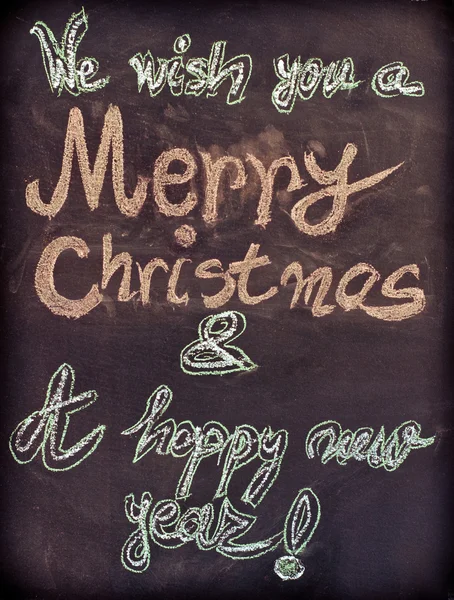 We wish you a
Merry
Christmas
&
A happy new
year!